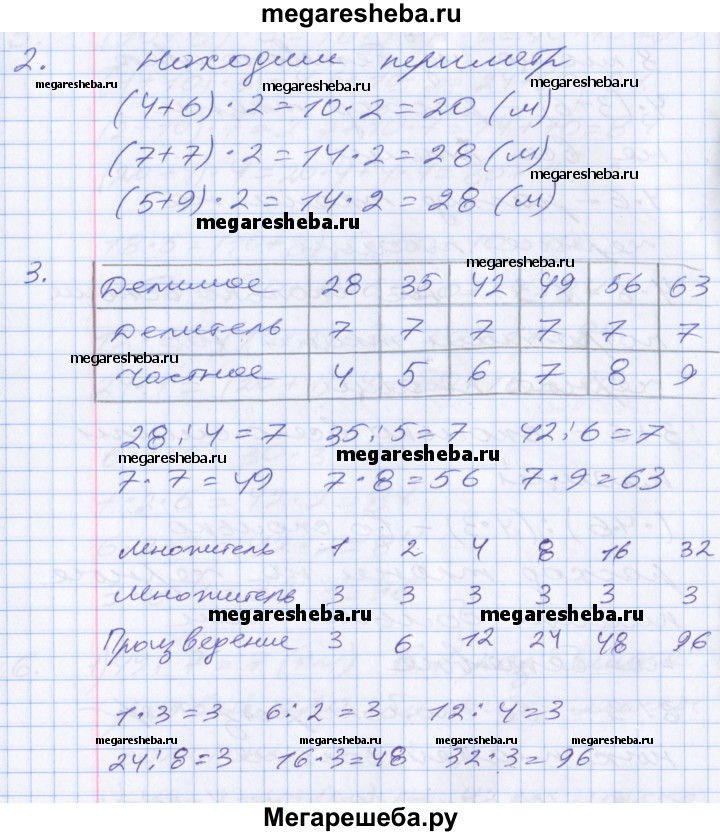 megaresheba.ru
2. Находим периметр
megaresheba.ru megaresheba.ru megaresheba.ru
(4+6) · 2 = 10 · 2 = 20 (м)
(7+7) · 2 = 14 · 2 = 28 (м)
megaresheba.ru
(5+9) · 2 = 14 · 2 = 28 (м)
megaresheba.ru
megaresheba.ru
3. Делимое 28 35 42 49 56 63
Делитель 7 7 7 7 7 7
megaresheba.ru
Частное 4 5 6 7 8 9
28 : 4 = 7 35 : 5 = 7 42 : 6 = 7
megaresheba.ru megaresheba.ru megaresheba.ru
7 · 7 = 49 7 · 8 = 56 7 · 9 = 63
Множитель 1 2 4 8 16 32
Множитель 3 3 3 3 3 3
megaresheba.ru megaresheba.ru
Произведение 3 6 12 24 48 96
1 · 3 = 3 6 : 2 = 3 12 : 4 = 3
megaresheba.ru megaresheba.ru megaresheba.ru megaresheba.ru
24 : 8 = 3 16 · 3 = 48 32 · 3 = 96
Мегарешеба.ру